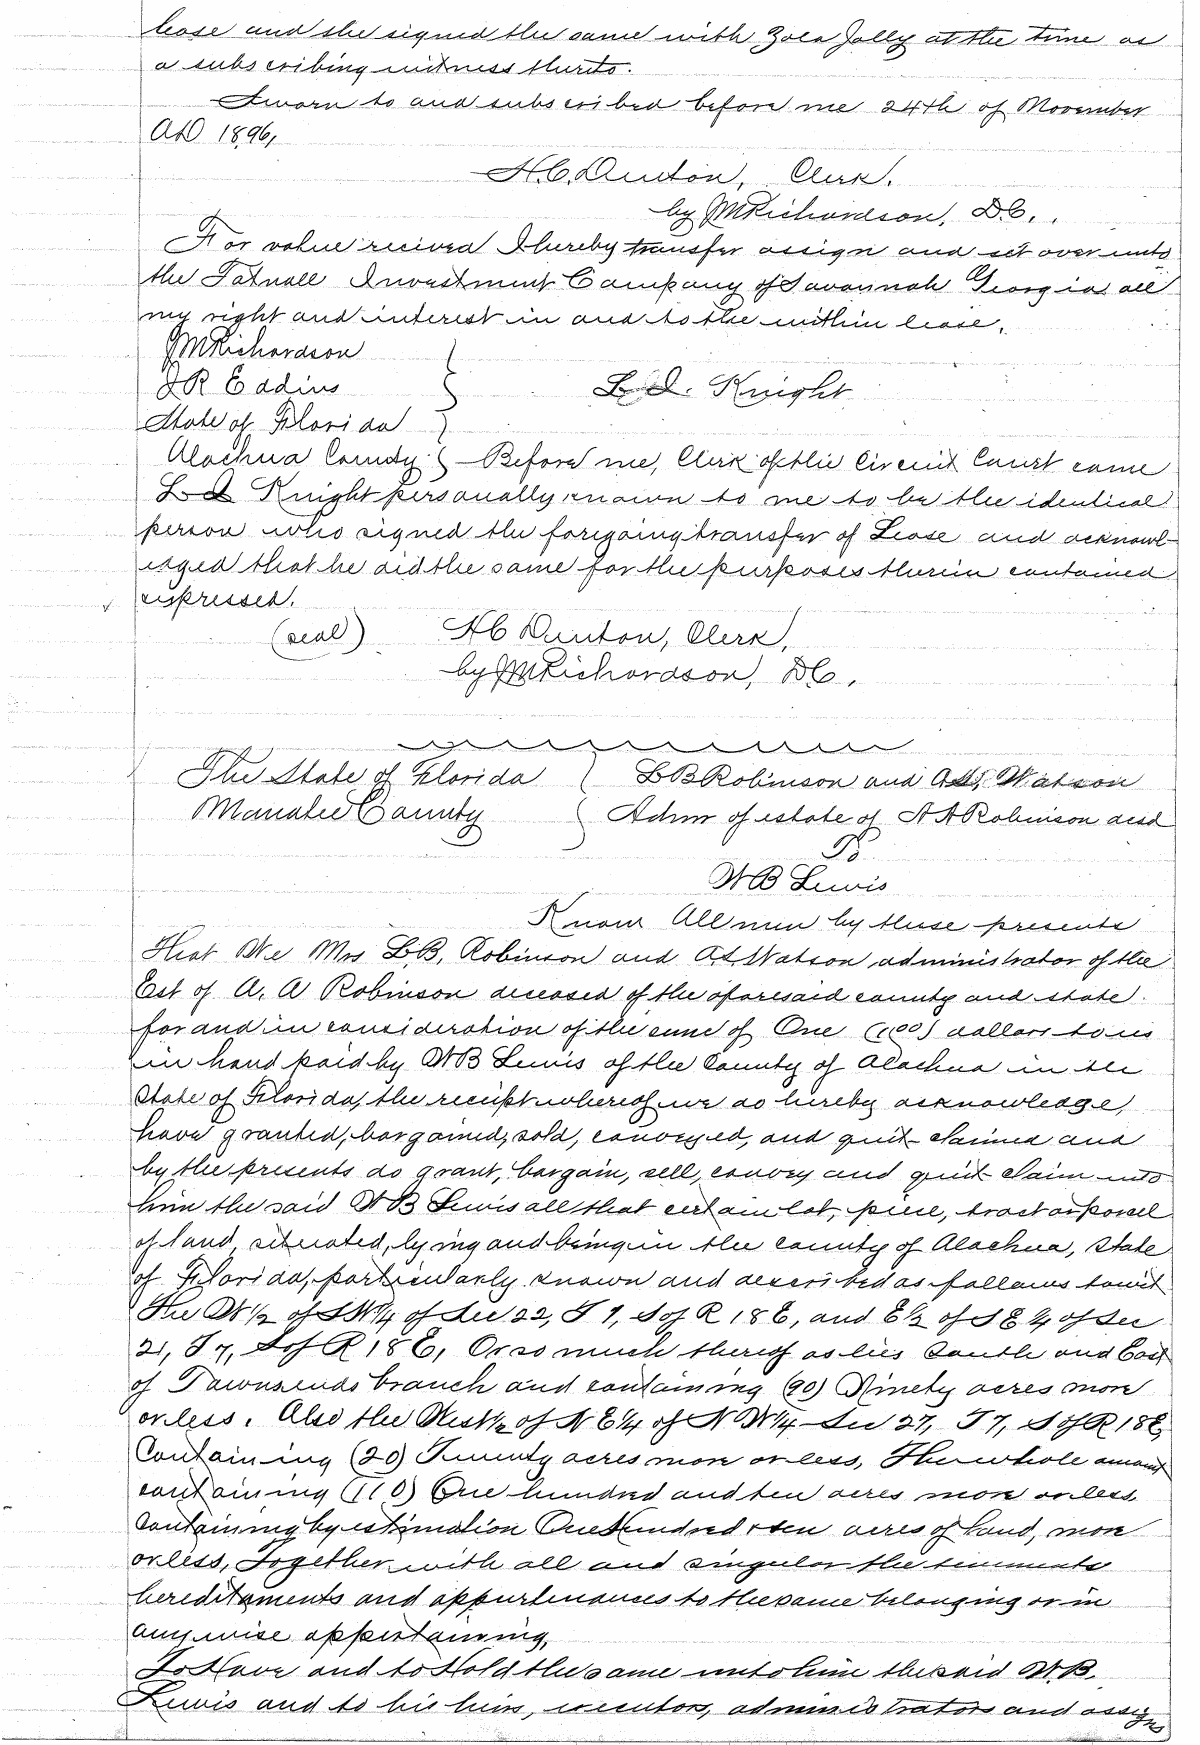 lease and she signed the same with Zola Jolly at the time as
a subscribing witness thereto.
Sworn to and subscribed before me 24th of November
AD 1896,
H.C. Denton, Clerk.
by JMRichardson, D.C.
For value recived I hereby transfer assign and set over unto
the Tatnall Investment Company of Savannah Georgia all
my right and interest in and to the within lease.
JMRichardson
JR Eddins
L. I. Knight
State of Florida
Alachua County Before me, Clerk of the Circuit Court came
L I Knight personally known to me to be the identical
person who signed the foregoing transfer of Lease and acknowl-
edged that he did the same for the purposes therein contained
expressed.
(seal) HC Denton, Clerk,
by JMRichardson, DC.
The State of Florida L B Robinson and A.L. Watson
Manatee County Admr of estate of A A Robinson decd
To
W B Lewis
Know All men by these presents
That We Mrs L.B. Robinson and A.L. Watson administrator of the
Est of A. A Robinson deceased of the aforesaid county and state
for and in consideration of the sume of One (1.00) dollars to us
in hand paid by W B Lewis of the County of Alachua in the
State of Florida, the receipt whereof we do hereby acknowledge,
have granted, bargained, sold, conveyed, and quit claimed and
by the presents do grant, bargain, sell, convey and quit claim unto
him the said W B Lewis all that certain lot, piece, tract or parcel
of land, situated, lying and being in the county of Alachua, State
of Florida, particularly known and described as follows towit
The W ½ of SW ¼ of Sec 22, T 7, S of R 18 E, and E ½ of S E ¼ of Sec
21, T 7, S of R 18 E, Or so much thereof as lies South and East
of Townsends branch and containing (90) Ninety acres more
or less. Also the West ½ of N E ¼ of N W ¼ Sec 27, T 7, S of R 18 E,
Containing (20) Twenty acres more or less, The whole amount
containing (110) One hundred and ten acres more or less
Containing by estimation One Hundred & ten acres of land, more
or less, Together with all and singular the tenements
hereditaments and appurtenances to the same belonging or in
anywise appertaining,
To Have and to Hold the same unto him the said W.B.
Lewis and to his heirs, executors, administrators and assigns